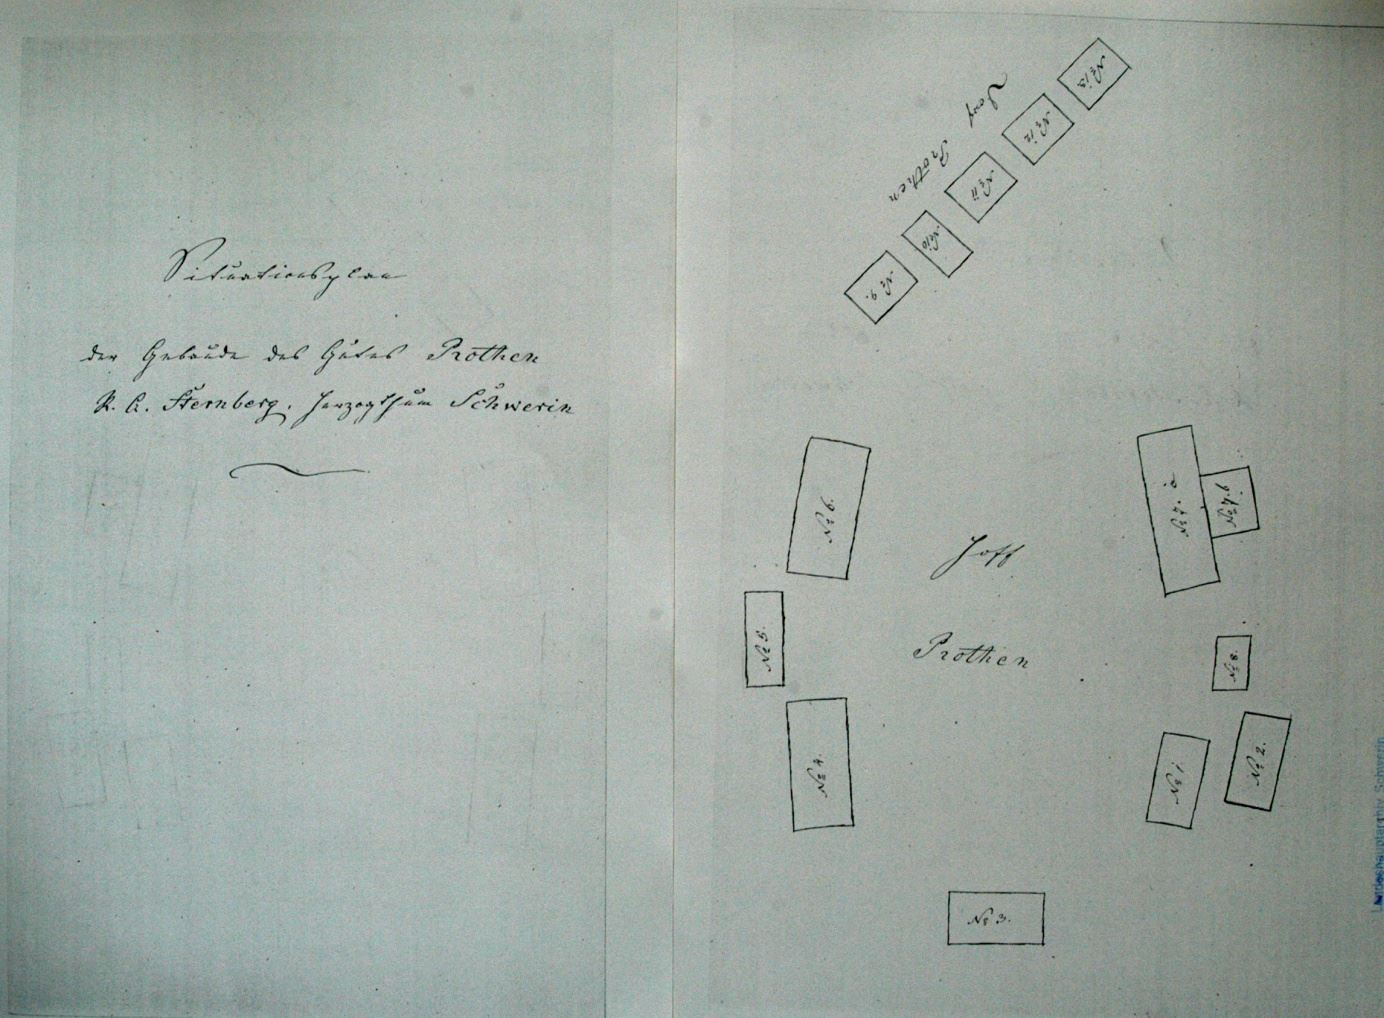 Situationsplan
der Gebäude des Gutes Prothen
R. A. Sternberg, Herzogthum Schwerin
Dorf Prothen
No 13
No 12
No 11
No 10
No 9.
No 6.
No 7. a
No 7. b
Hoff
Prothen
No 5.
No 8.
No 4.
No 1.
No 2.
No 3.
Landeshauptarchiv Schwerin